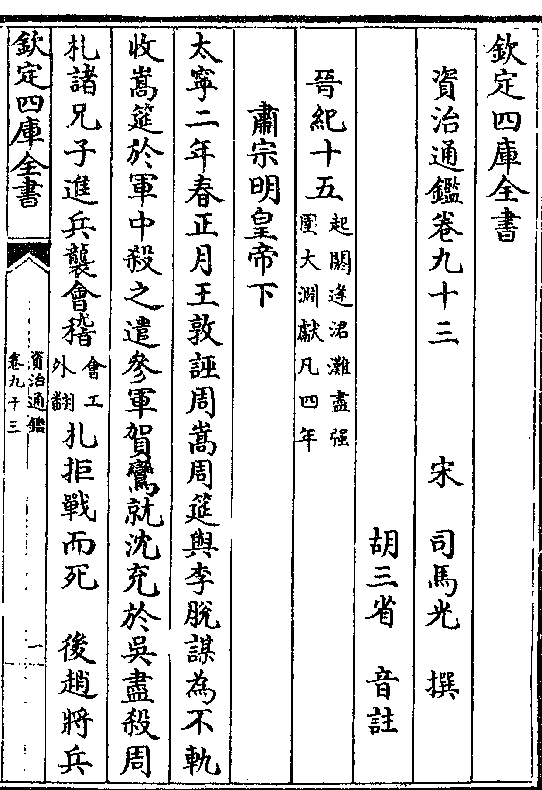 欽定四庫全書
資治通鑑卷九十三
宋　司馬光　撰
胡三省　音註
晉紀十五起閼逢涒灘盡强
圉大淵獻凡四年
肅宗明皇帝下
太寧二年春正月王敦誣周嵩周筵與李脫謀為不軌
收嵩筵於軍中殺之遣參軍賀鸞就沈充於吳盡殺周
札諸兄子進兵襲會稽會工
外翻札拒戰而死　後趙將兵
欽定四庫全書
資治通鑑
卷九十三
一